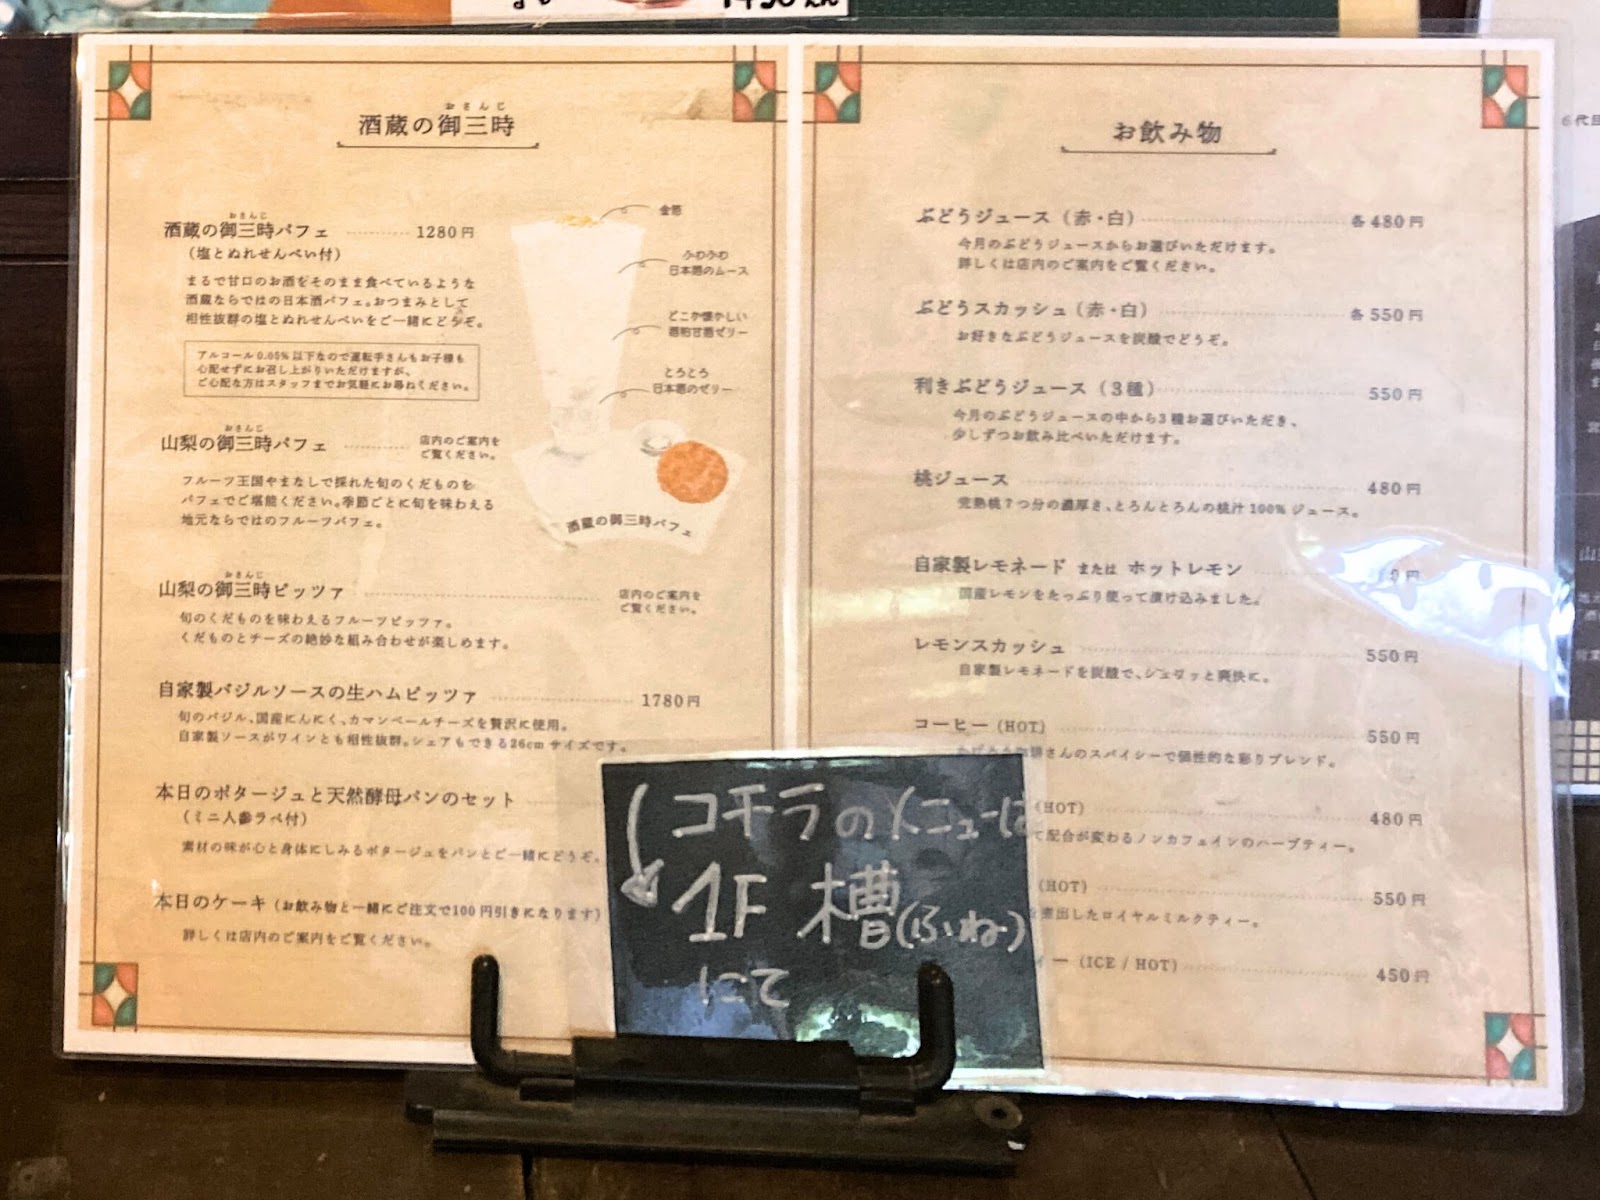 酒蔵の御三時
おさんじ
酒蔵の御三時パフェ 1280円
おさんじ
(塩とぬれせんべい付)
まるで甘口のお酒をそのまま食べているような
酒蔵ならではの日本酒パフェ。おつまみとして
相性抜群の塩とぬれせんべいをご一緒にどうぞ。
アルコール0.05%以下なので運転手さんもお子様も
心配せずにお召し上がりいただけますが、
ご心配な方はスタッフまでお気軽にお尋ねください。
金箔
ふわふわ
日本酒のムース
どこか懐かしい
酒粕甘酒ゼリー
とろとろ
日本酒のゼリー
酒蔵の御三時パフェ
山梨の御三時パフェ 店内のご案内を
おさんじ
ご覧ください。
フルーツ王国やまなしで採れた旬のくだものを
パフェでご堪能ください。季節ごとに旬を味わえる
地元ならではのフルーツパフェ。
山梨の御三時ピッツァ 店内のご案内を
おさんじ
ご覧ください。
旬のくだものを味わえるフルーツピッツァ。
くだものとチーズの絶妙な組み合わせが楽しめます。
自家製バジルソースの生ハムピッツァ 1780円
旬のバジル、国産にんにく、カマンベールチーズを贅沢に使用。
自家製ソースがワインとも相性抜群。シェアもできる26cmサイズです。
本日のポタージュと天然酵母パンのセット
(ミニ人参ラペ付)
素材の味が心と身体にしみるポタージュをパンとご一緒にどうぞ。
本日のケーキ(お飲み物と一緒にご注文で100円引きになります)
詳しくは店内のご案内をご覧ください。
お飲み物
ぶどうジュース(赤・白) 各480円
今月のぶどうジュースからお選びいただけます。
詳しくは店内のご案内をご覧ください。
ぶどうスカッシュ(赤・白) 各550円
お好きなぶどうジュースを炭酸でどうぞ。
利きぶどうジュース(3種) 550円
今月のぶどうジュースの中から3種お選びいただき、
少しずつお飲み比べいただけます。
桃ジュース 480円
完熟桃7つ分の濃厚さ、とろんとろんの桃汁100%ジュース。
自家製レモネード または ホットレモン 円
国産レモンをたっぷり使って漬け込みました。
レモンスカッシュ 550円
自家製レモネードを炭酸で、シュワッと爽快に。
コーヒー(HOT) 550円
さんのスパイシーで個性的な彩りブレンド。
(HOT) 480円
て配合が変わるノンカフェインのハーブティー。
(HOT) 550円
煮出したロイヤルミルクティー。
ィー(ICE / HOT) 450円
コチラのメニューは
1F 槽(ふね)
にて